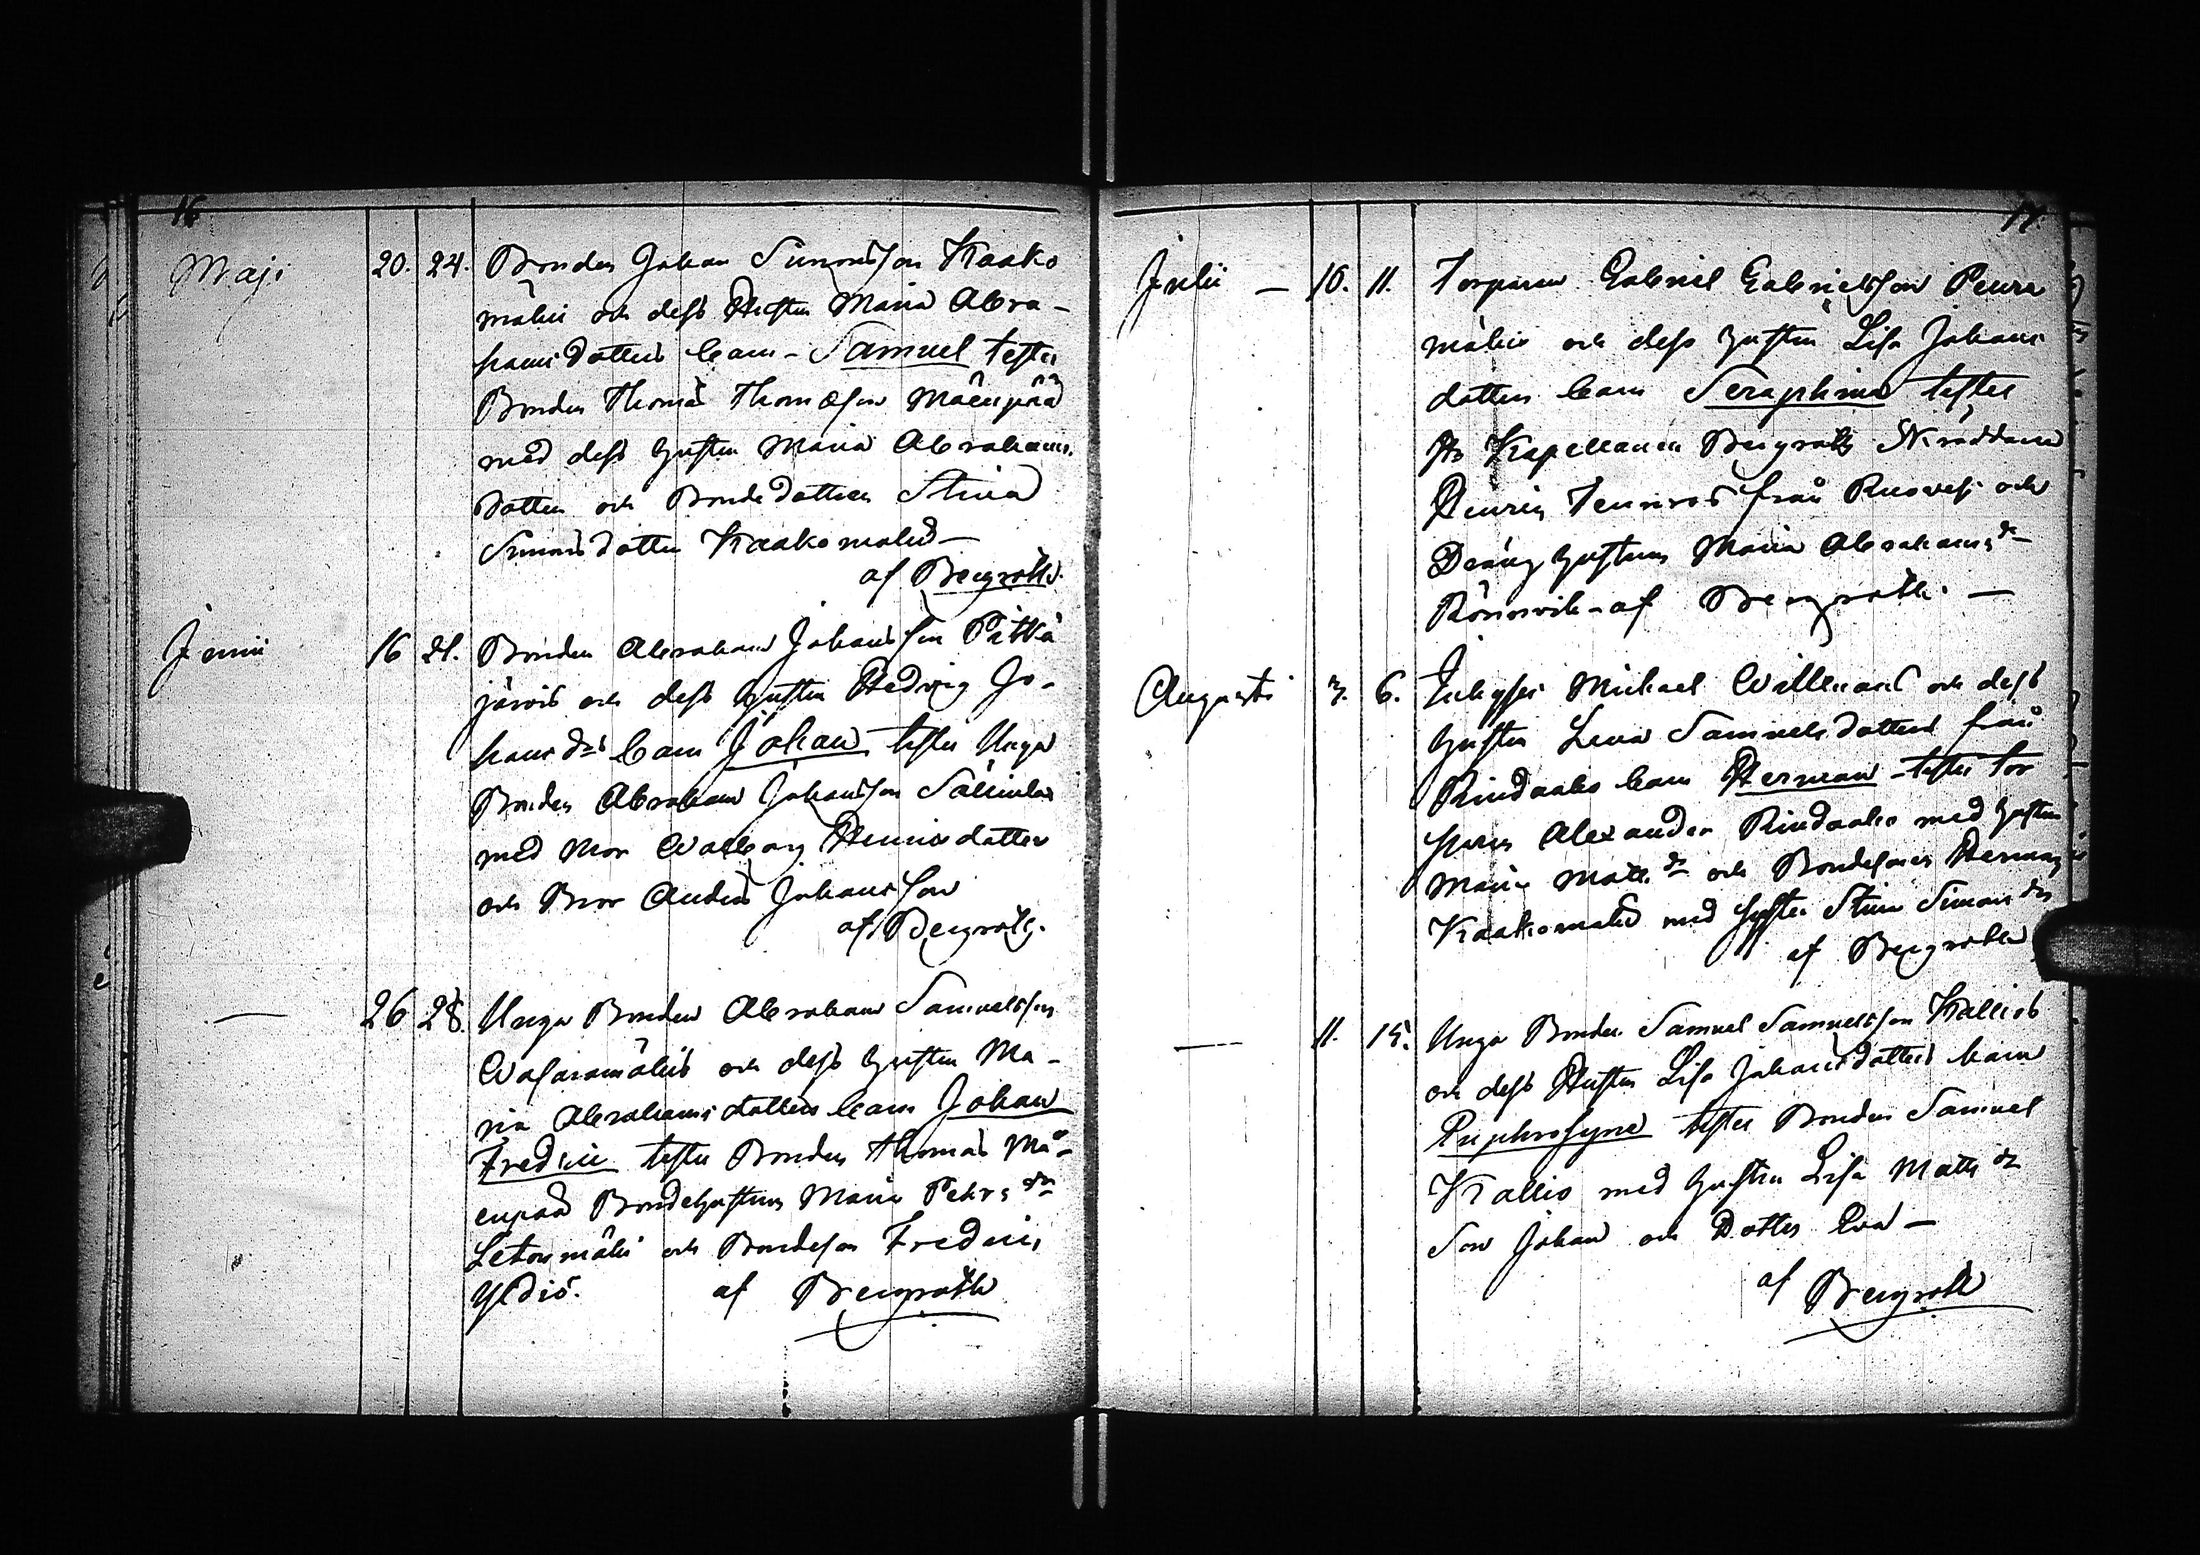 16
Maji 20. 24. Bonden Johan Simonsson Kaako
mäkis och dess Hustru Maria Abra-
hams dotters barn - Samuel testes
Bonden Thomas Thomæson Mäenpää
med dess hustru Maria Abrahams
dotter och Bonde dottren Stina
Simonsdotter Kaakomäki -
af Bergroth.
Junii 16 21. Bonden Abraham Johansson Pitkä
järvis och dess hustru Hedvig Jo-
hans drs barn Johan testes Unga
Bonden Abraham Johansson
med Mor Walborg dotter
och Bror Anders Johansson
af Bergroth.
— 26 28. Unga Bonden Abraham Samuelsson
Wasaramäkis och dess hustru Ma-
ria Abrahams dotters barn Johan
Fredric testes Bonden Thomas Mä-
enpää Bondehustrun Maria Pehrs dr
mäki och Bondeson Fredric
Yldiö. af Bergroth
17.
Julii — 10. 11. Torparen Gabriel Gabrielsson Peura
mäkis och dess hustru Lisa Johans
dotters barn Seraphina testes
Kapellanen Bergroth Skräddaren
Henric från Ruovesi och
Dräng hustrun Maria Abrahams dr
af Bergroth. —
Augusti 3. 6. Inhyses Michael Willmans och dess
hustru Lena Samuels dotters från
Rindaaho barn Herman - testes Tor
paren Alexander Rindaaho med hustru
Maria Matts dr och Bondesonen Herman
Kaakomäki med syster Stina Simons dr
af Bergroth
— 11. 15. Unga Bonden Samuel Samuelsson Kallios
och dess Hustru Lisa Johansdotters barn
Euphrosyne testes Bonden Samuel
Kallio med hustru Lisa Matts dr
Son Johan och Dotter Eva —
af Bergroth